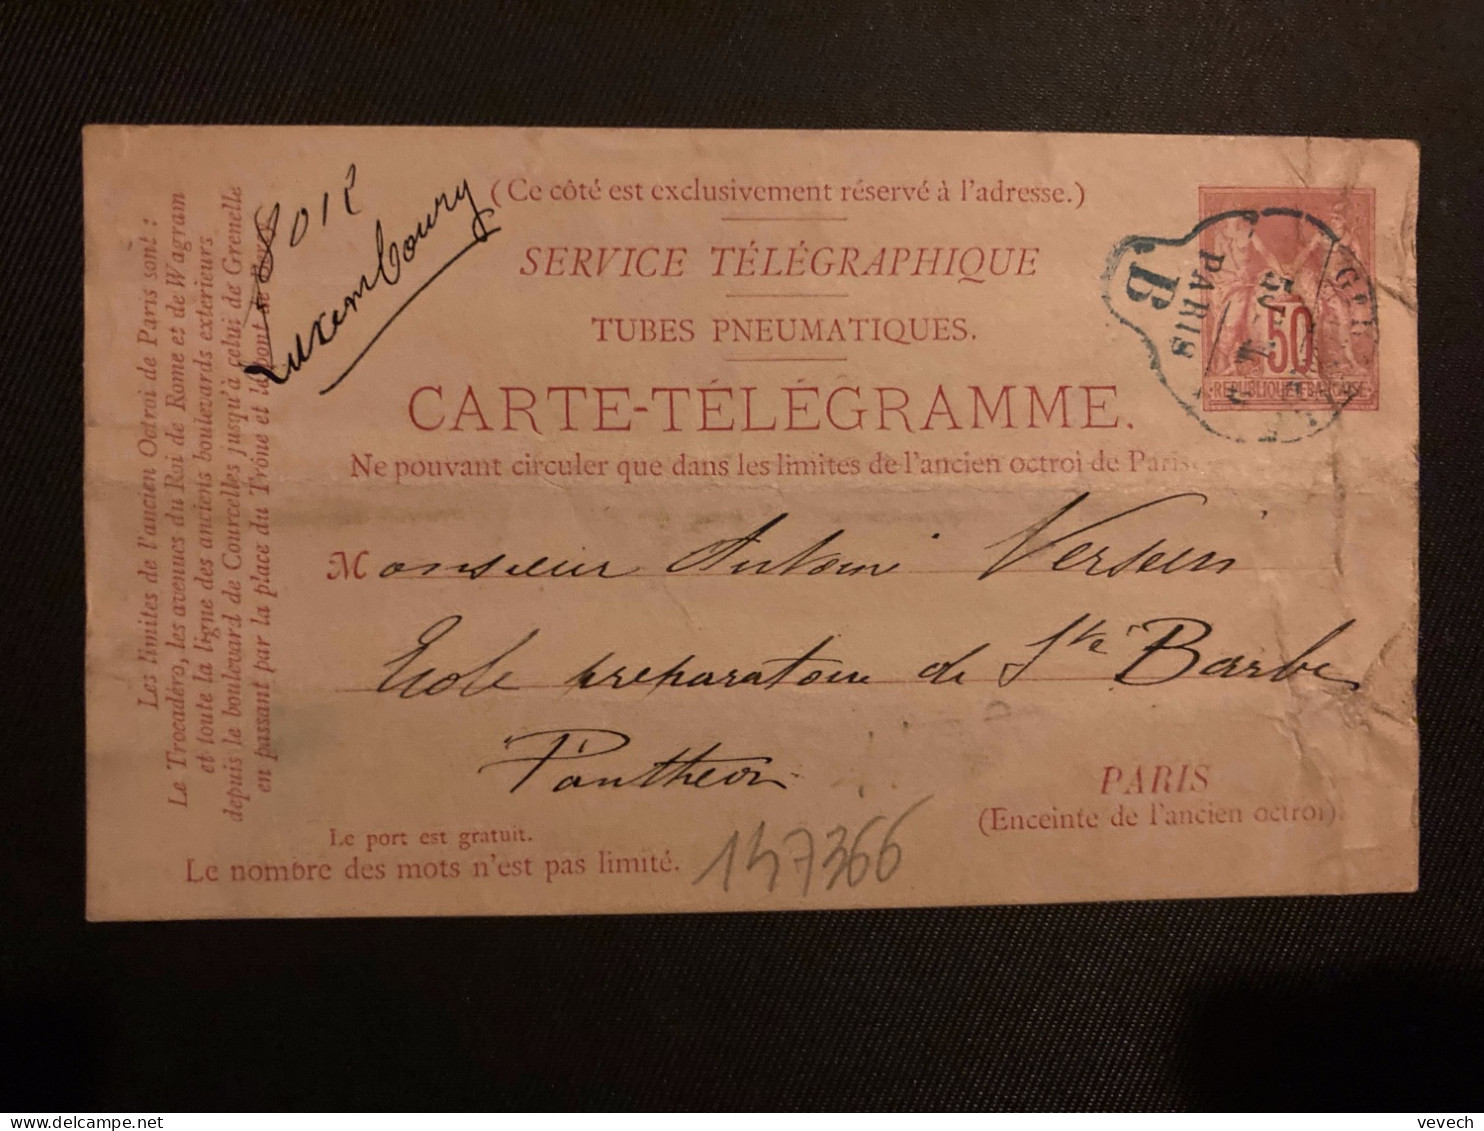 (Ce côté est exclusivement réservé à l'adresse.)
SERVICE TÉLÉGRAPHIQUE
TUBES PNEUMATIQUES.
CARTE-TÉLÉGRAMME.
Ne pouvant circuler que dans les limites de l'ancien octroi de Paris.
Les limites de l'ancien Octroi de Paris sont :
Le Trocadéro, les avenues du Roi de Rome et de Wagram
et toute la ligne des anciens boulevards extérieurs
depuis le boulevard de Courcelles jusqu'à celui de Grenelle
en passant par la place du Trône et le pont de
Luxembourg
B
PARIS
50
REPUBLIQUE FRANCAISE
Monsieur Antoine
Ecole preparatoire de Ste Barbe
Pantheon
PARIS
(Enceinte de l'ancien octroi).
Le port est gratuit.
Le nombre des mots n'est pas limité.
147366
vevech